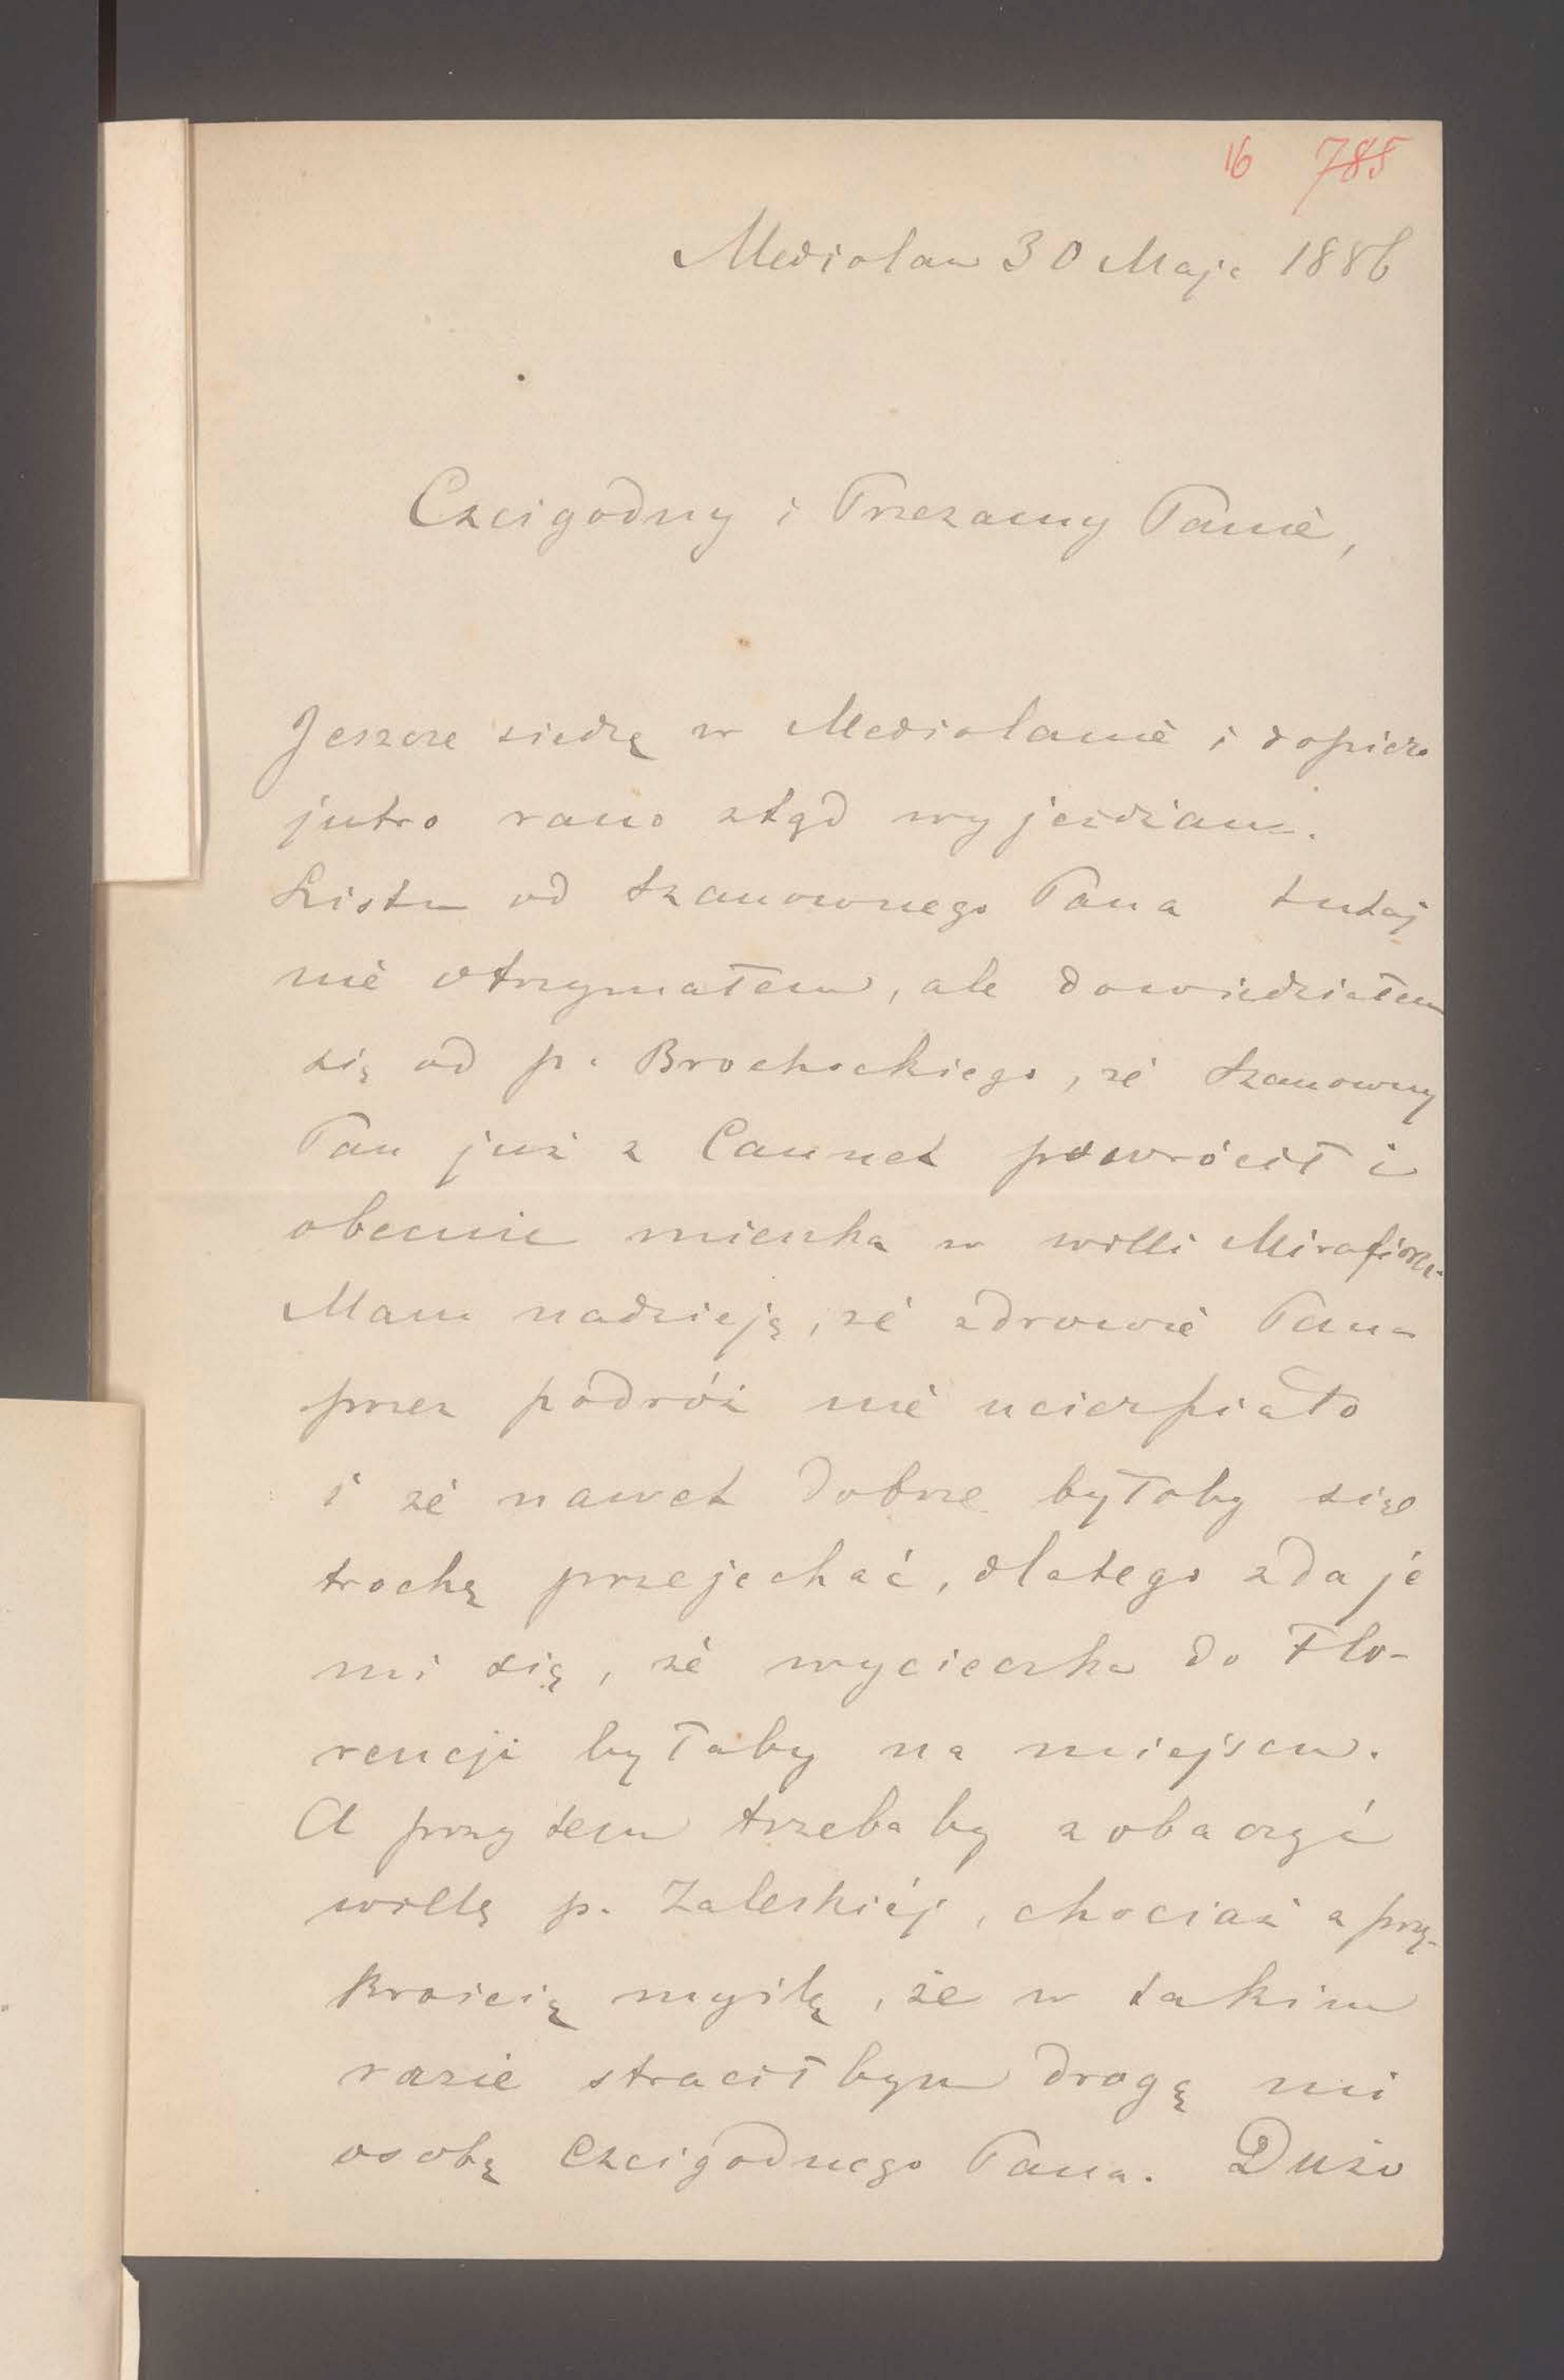 16 785
Mediolan 30 Maja 1886
Czcigodny i Przezacny Panie,
Jeszcze siedzę w Mediolanie i dopiero
jutro rano ztąd wyjeżdżam.
Listu od Szanownego Pana tutaj
nie otrzymałem, ale dowiedziałem
się od p. Brochockiego, że Szanowny
Pan już z Cannet powrócił i
obecnie mieszka w willi Mirafiori.
Mam nadzieję, że zdrowie Pana
przez podróż nie ucierpiało
i że nawet dobrze byłoby się
trochę przejechać, dlatego zdaje
mi się, że wycieczka do Flo-
rencji byłaby na miejscu.
A przytem trzebaby zobaczyć
willę p. Zaleskiéj, chociaż z przy-
krością myślę, że w takim
razie straciłbym drogą mi
osobę Czcigodnego Pana. Dużo